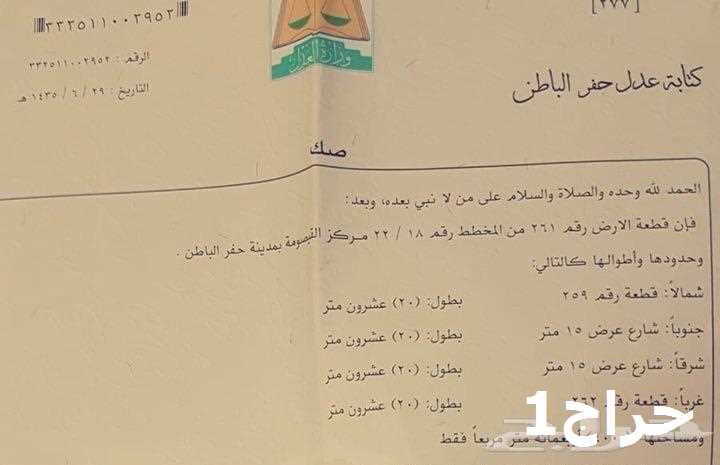 [٢٧٧]
٣٣٢٥١١٠٠٢٩٥٢
وزارة العدل
الرقم : ٣٣٢٥١١٠٠٢٩٥٢
التاريخ : ٢٩ / ٦ / ١٤٣٥ هـ
كتابة عدل حفر الباطن
صك
الحمد لله وحده والصلاة والسلام على من لا نبي بعده، وبعد:
فإن قطعة الارض رقم ٢٦١ من المخطط رقم ١٨ / ٢٢ مركز القيصومة بمدينة حفر الباطن .
وحدودها وأطوالها كالتالي:
شمالاً: قطعة رقم ٢٥٩ بطول: (٢٠) عشرون متر
جنوباً: شارع عرض ١٥ متر بطول: (٢٠) عشرون متر
شرقاً: شارع عرض ١٥ متر بطول: (٢٠) عشرون متر
غرباً: قطعة رقم ٢٦٢ بطول: (٢٠) عشرون متر
ومساحتها أربعمائة متر مربعاً فقط
حراج1